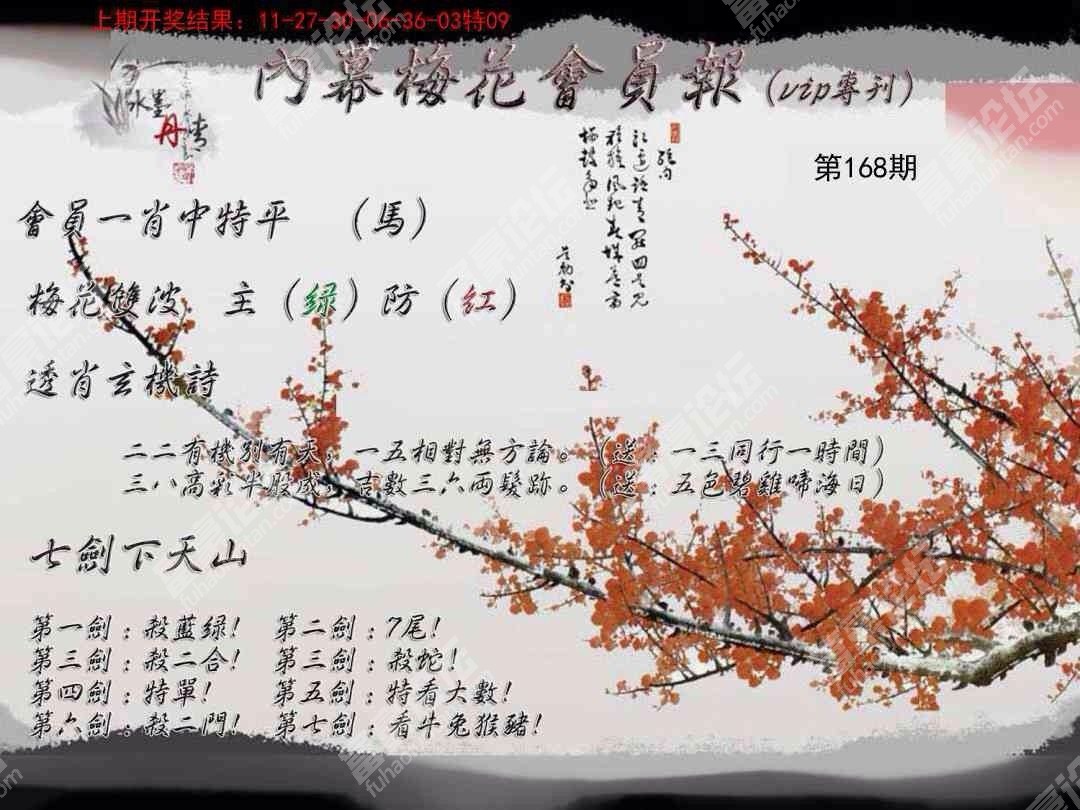 上期开奖结果：11-27-30-06-36-03特09
內幕梅花會員報（vip專刊）
水墨丹青
第168期
會員一肖中特平　（馬）
梅花雙波　主（绿）防（红）
透肖玄機詩
二二有機別有天，一五相對無方論。（送：一三同行一時間）
三八高彩半股成，吉數三六兩髮跡。（送：五色碧雞啼海日）
七劍下天山
第一劍：殺藍绿！　第二劍：7尾！
第三劍：殺二合！　第三劍：殺蛇！
第四劍：特單！　第五劍：特看大數！
第六劍：殺二門！　第七劍：看牛兔猴豬！
富豪论坛
fuhaoltan.com